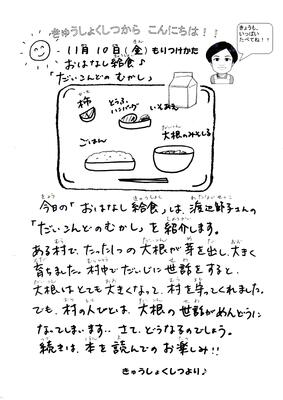 きゅうしょくしつから こんにちは！！
きょうも、
いっぱい
たべてね！！
11月10日(金) もりつけかた
おはなし給食♪
「だいこんどの むかし」
柿
とうふ
ハンバーグ
いそあえ
ごはん
大根のみそしる
今日の「おはなし給食」は、渡辺節子さんの
「だいこんどのむかし」を紹介します。
ある村で、たった1つの大根が芽を出し、大きく
育ちました。村中でだいじに世話をすると、
大根はとても大きくなって、村を守ってくれました。
でも、村の人びとは、大根の世話がめんどうに
なってしまいます… さて、どうなるのでしょう。
続きは、本を読んでのお楽しみ!!
きゅうしょくしつより♪